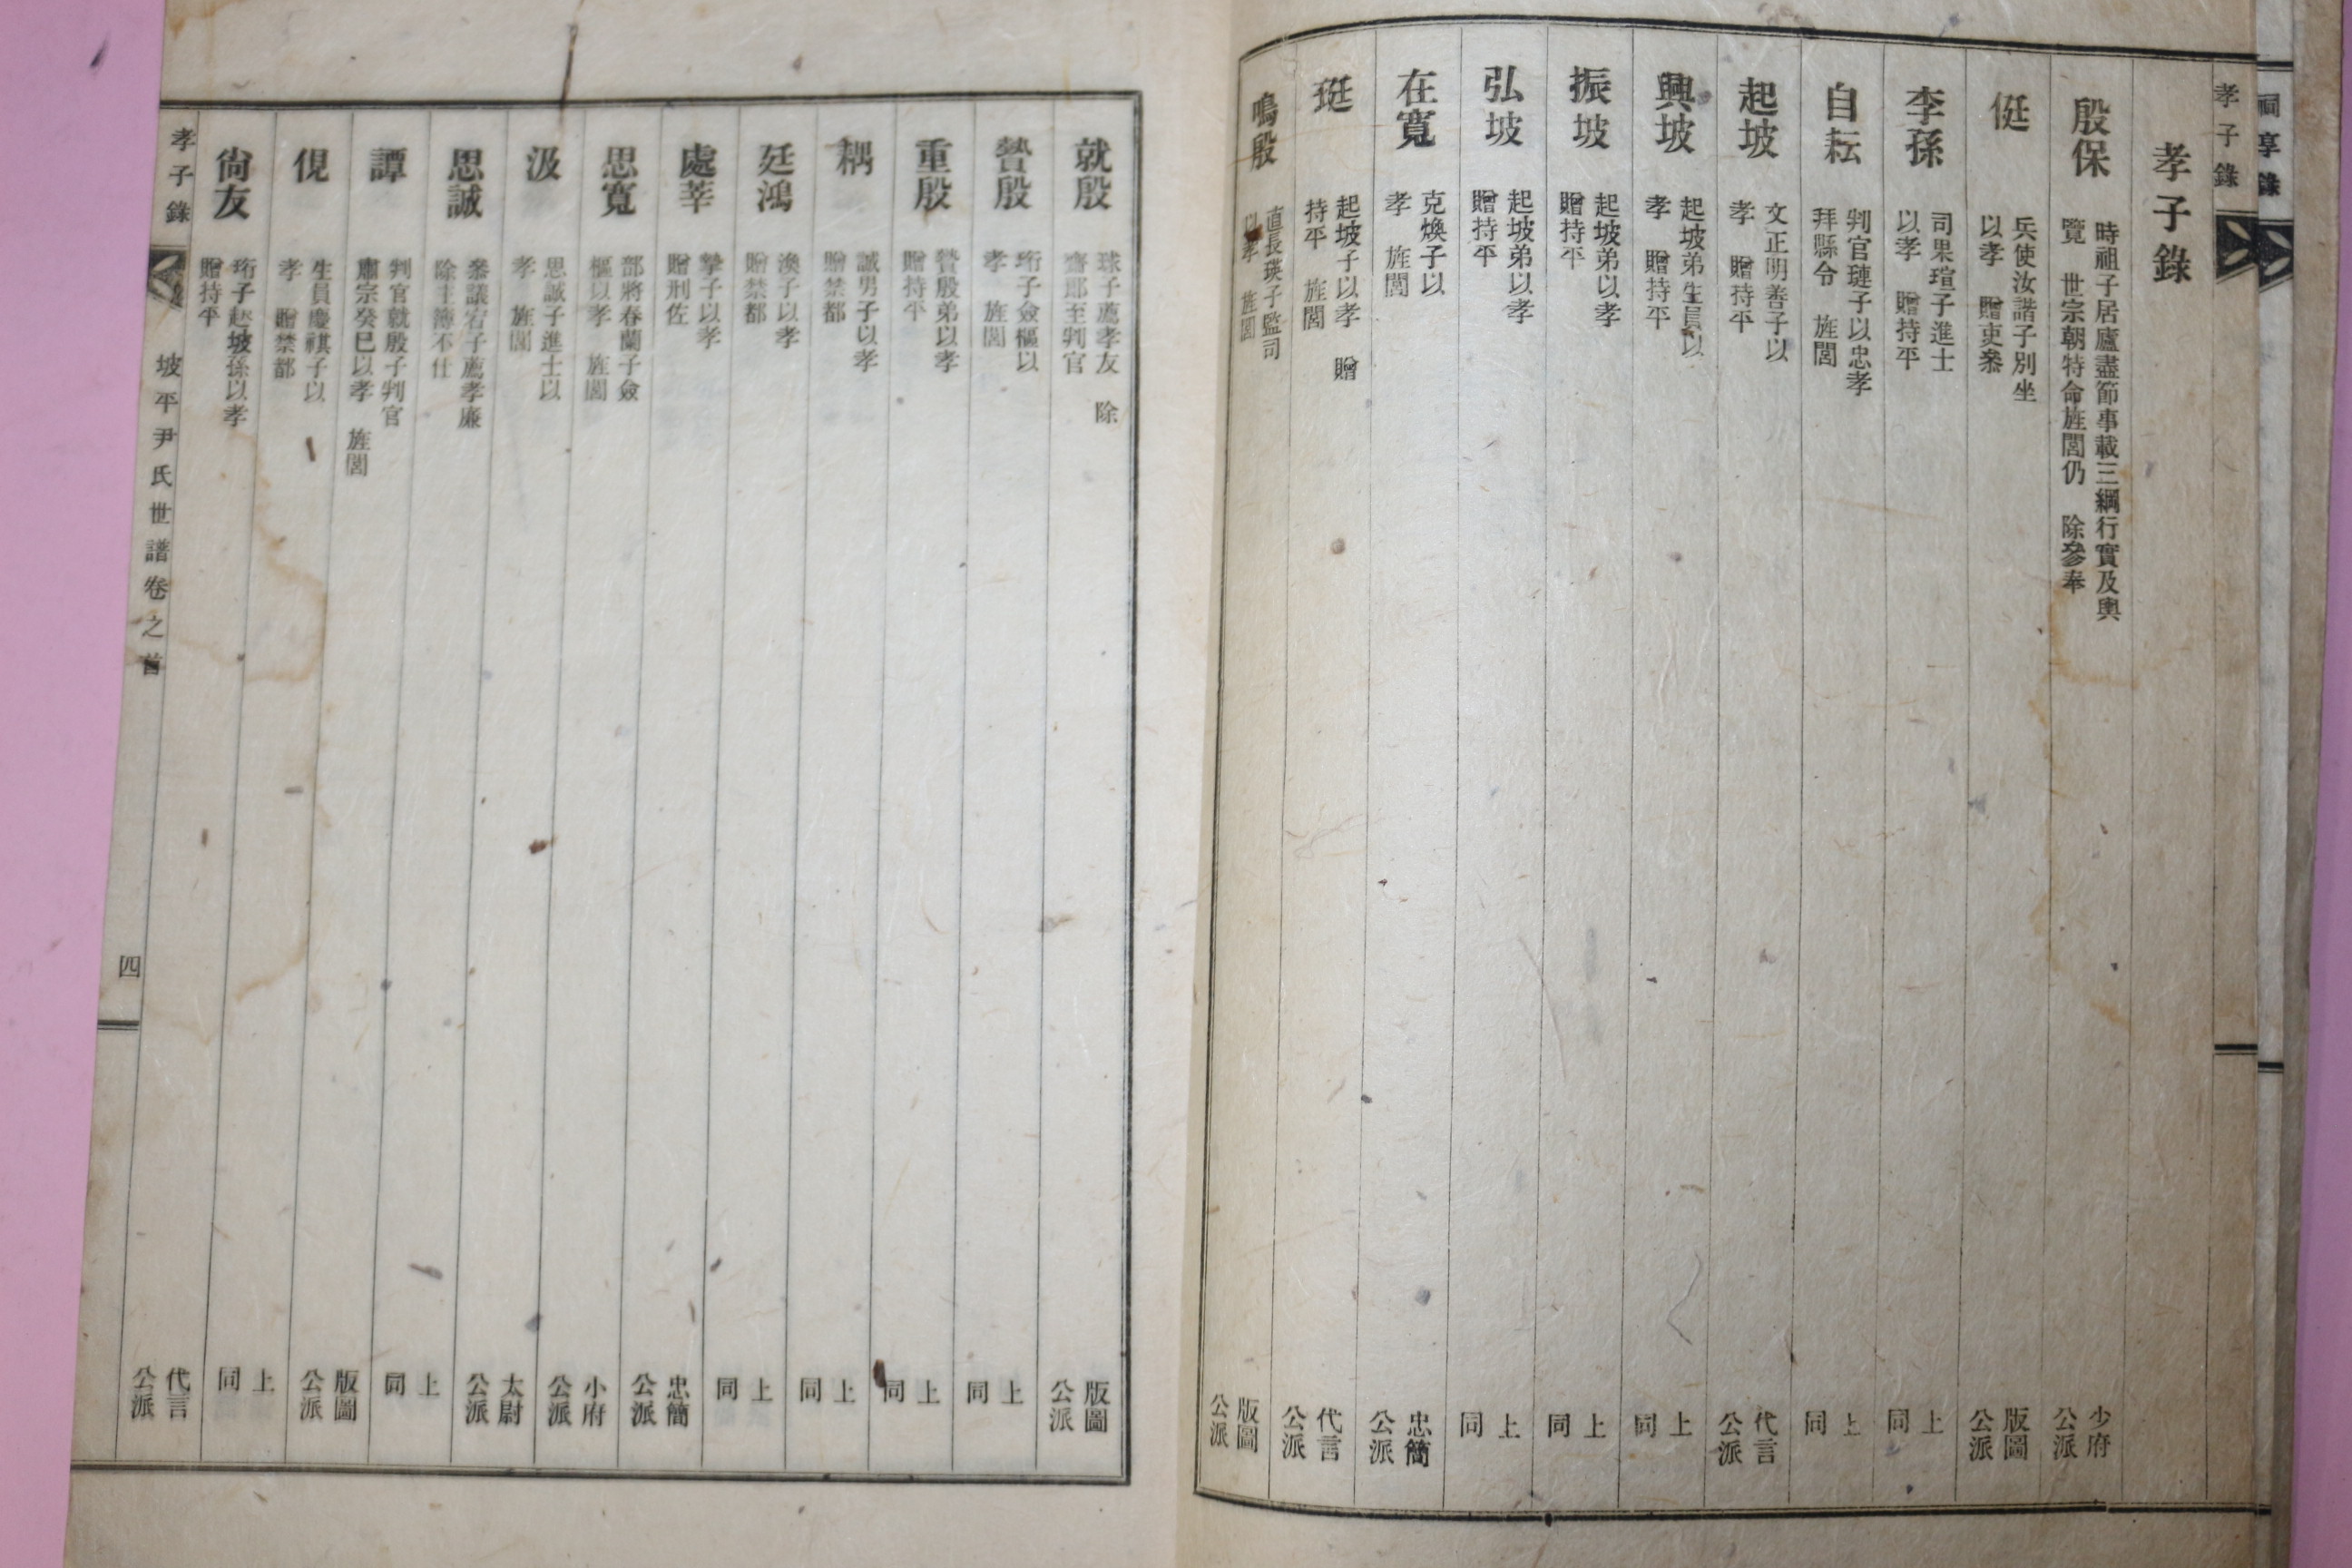 祠享錄
孝子錄
孝子錄
殷保
時祖子居廬盡節事載三綱行實及輿
覽 世宗朝特命旌閭仍 除參奉
少府
公派
侹
兵使汝諧子別坐
以孝 贈吏叅
版圖
公派
李孫
司果瑄子進士
以孝 贈持平
上
同
自耘
判官璉子以忠孝
拜縣令 旌閭
上
同
起坡
文正明善子以
孝 贈持平
代言
公派
興坡
起坡弟生員以
孝 贈持平
上
同
振坡
起坡弟以孝
贈持平
上
同
弘坡
起坡弟以孝
贈持平
上
同
在寬
克煥子以
孝 旌閭
忠簡
公派
珽
起坡子以孝 贈
持平 旌閭
代言
公派
鳴殷
直長瑛子監司
以孝 旌閭
版圖
公派
就殷
球子薦孝友 除
齋郎至判官
版圖
公派
贊殷
珩子僉樞以
孝 旌閭
上
同
重殷
贊殷弟以孝
贈持平
上
同
耦
誠男子以孝
贈禁都
上
同
廷鴻
渙子以孝
贈禁都
上
同
處莘
摯子以孝
贈刑佐
忠簡
公派
思寬
部將春蘭子僉
樞以孝 旌閭
小府
公派
汲
思誠子進士以
孝 旌閭
太尉
公派
思誠
叅議宕子薦孝廉
除主簿不仕
上
同
譚
判官就殷子判官
肅宗癸巳以孝 旌閭
版圖
公派
俔
生員慶祺子以
孝 贈禁都
上
同
尙友
珩子起坡孫以孝
贈持平
代言
公派
孝子錄
坡平尹氏世譜卷之首
四